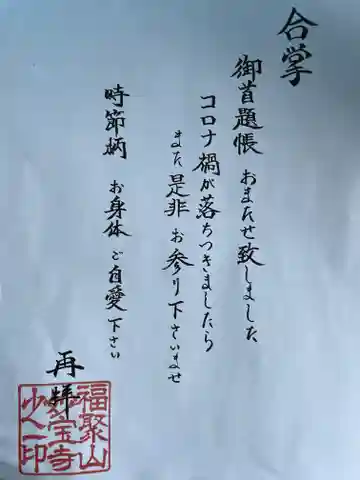 合掌
御首題帳 おまたせ致しました
コロナ禍が落ちつきましたら
また是非 お参り下さいませ
時節柄 お身体ご自愛下さい
再拝
福聚山
妙宝寺